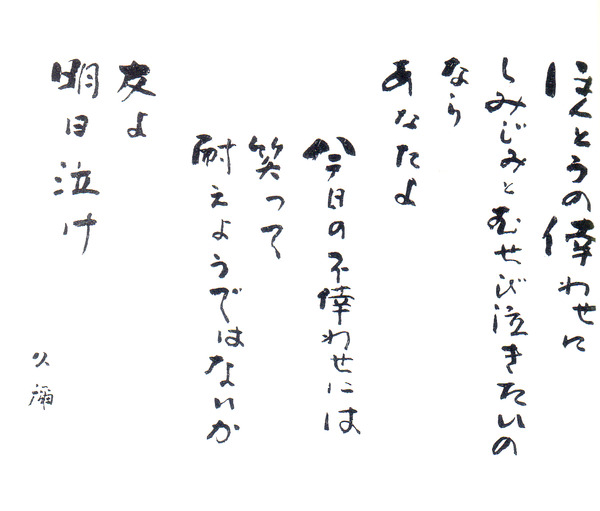 ほんとうの倖わせに
しみじみとむせび泣きたいの
なら
あなたよ
今日の不倖わせには
笑って
耐えようではないか
友よ
明日泣け
久彌